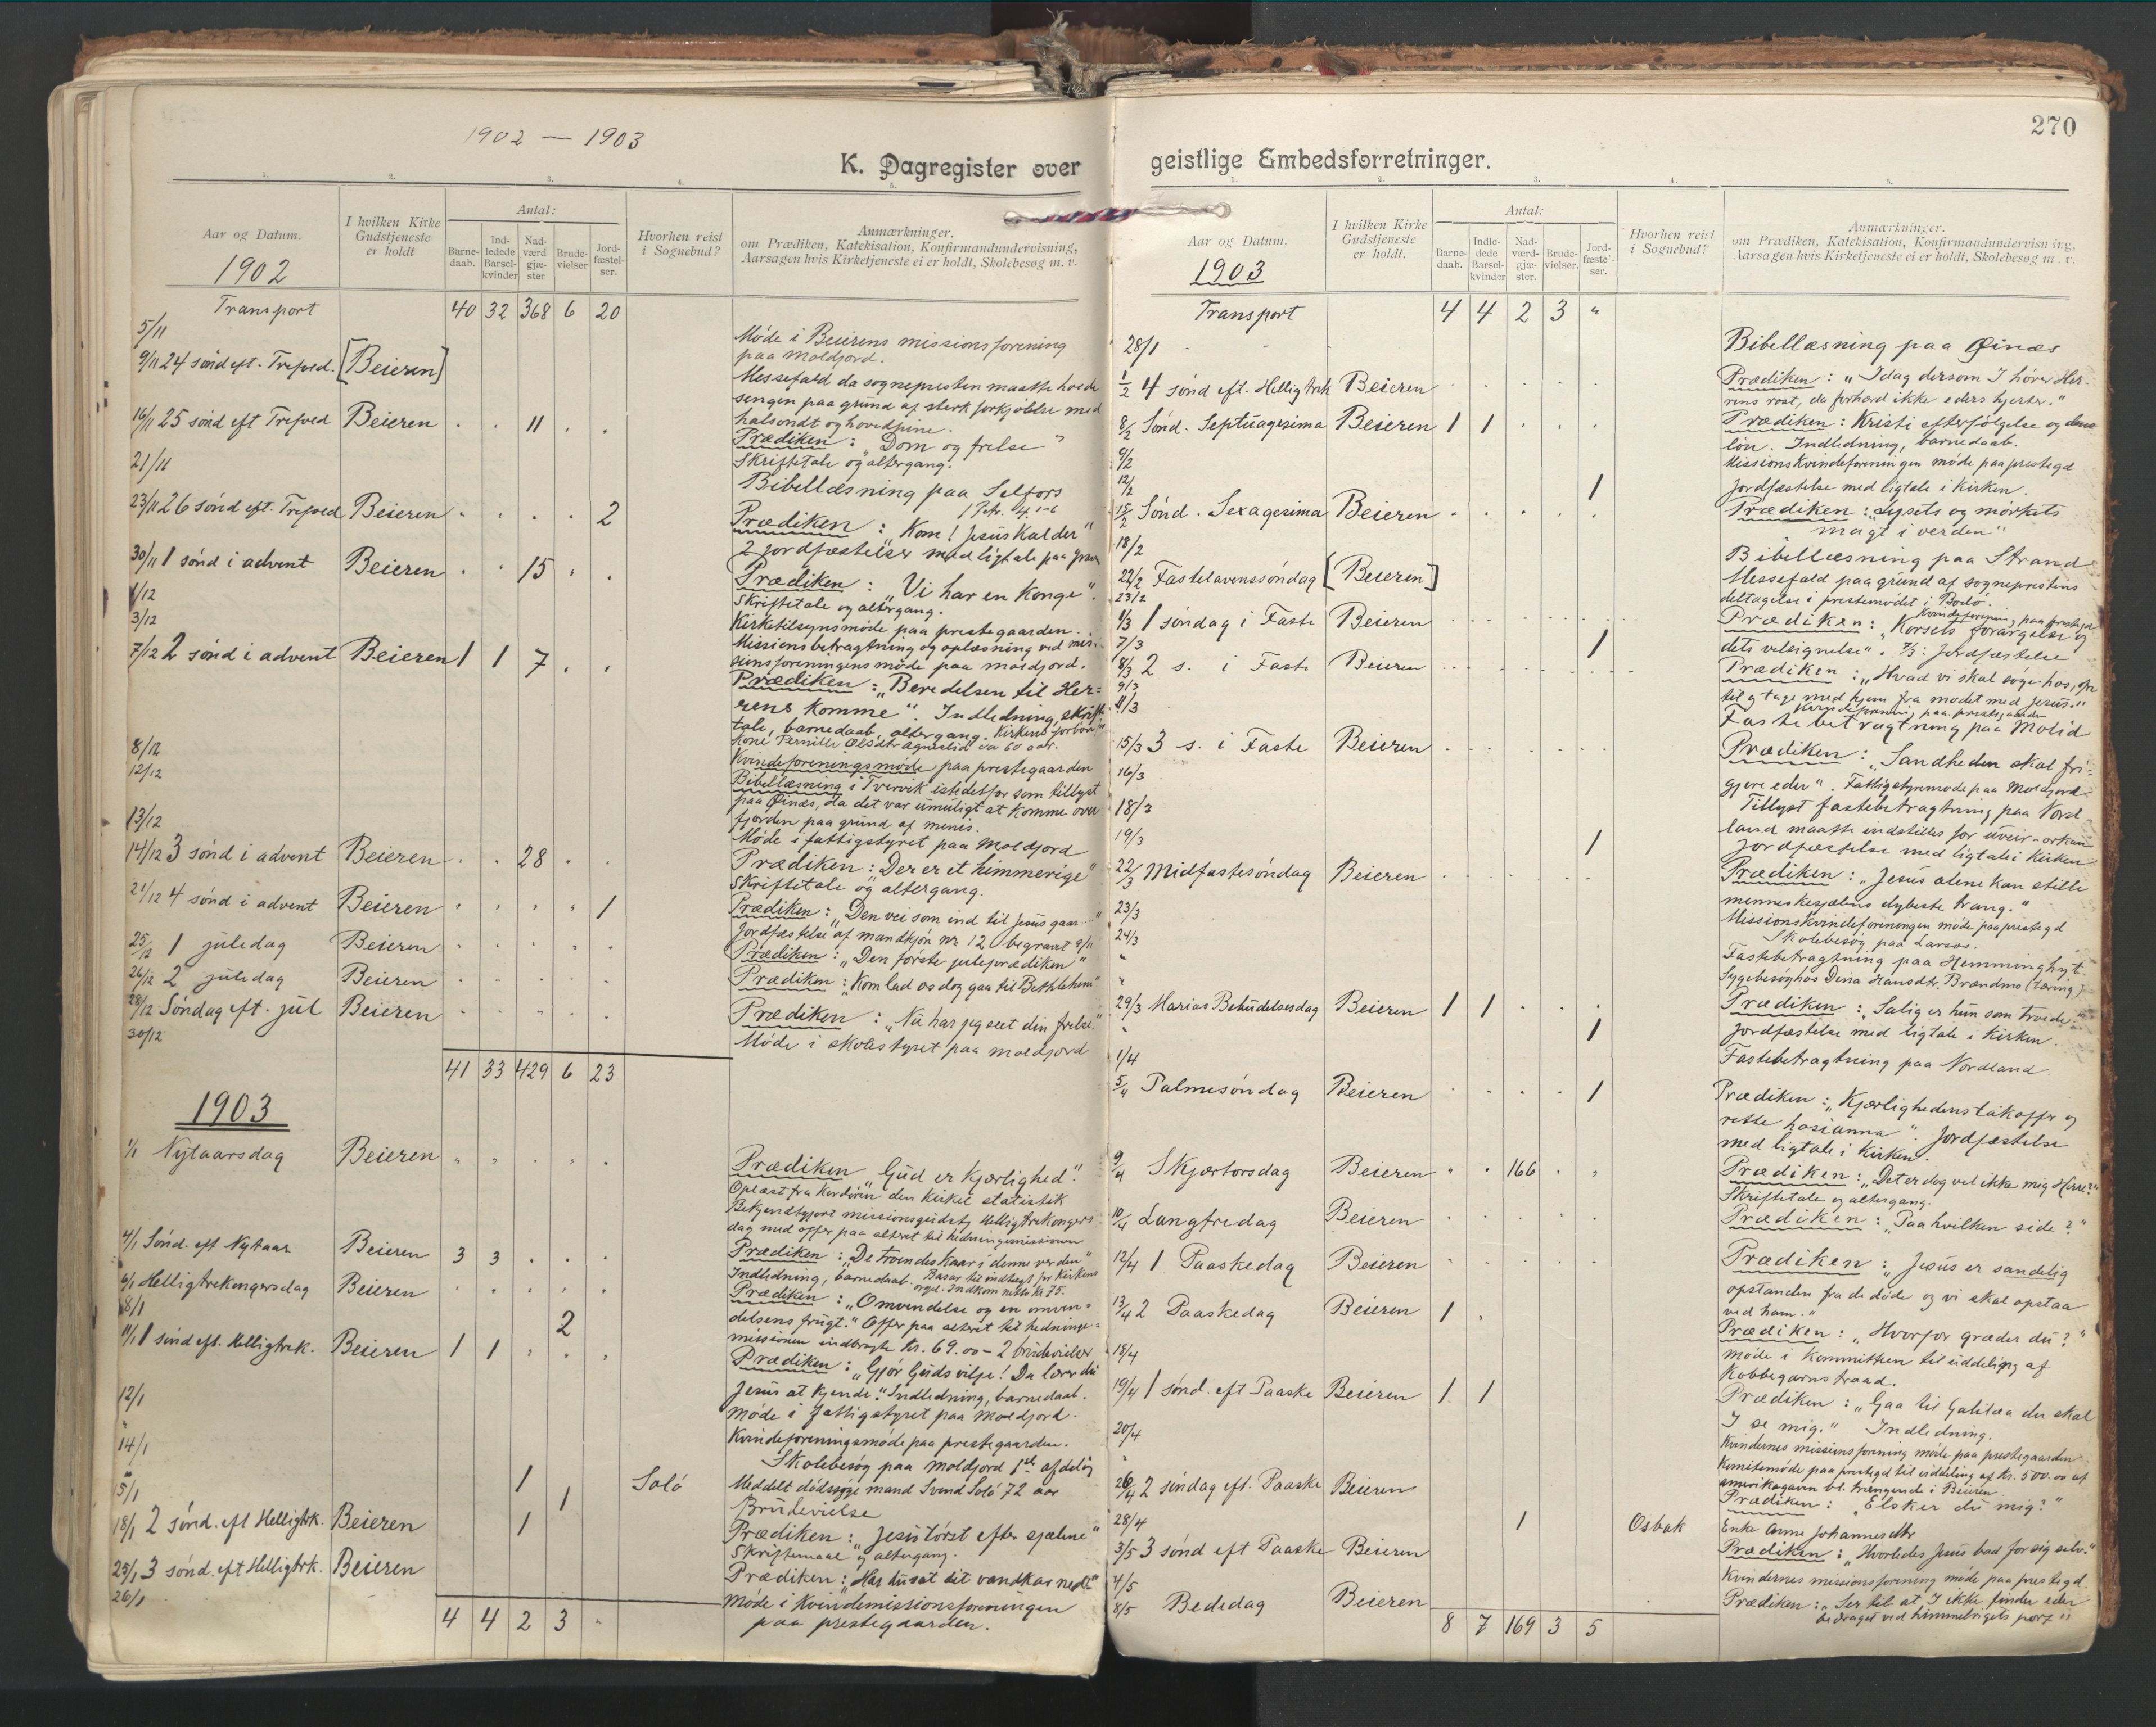 1902 — 1903
K. Dagregister over
1. 2. 3. 4. 5.
Aar og Datum. I hvilken Kirke Gudstjeneste er holdt Antal: Barne-daab. Ind-ledede Barsel-kvinder Nad-værd gjæ-ster Brude-vielser Jord-fæstel-ser. Hvorhen reist i Sognebud? Anmærkninger. om Prædiken, Katekisation, Konfirmandundervisning, Aarsagen hvis Kirketjeneste ei er holdt, Skolebesøg m. v.
1902
Transport 40 32 368 6 20
5/11 Møde i Beierens missionsforening
paa Moldjord.
9/11 24 sønd eft. Trefoed. [Beieren] Messefald da sognepresten maatte holde
sengen paa grund af sterk forkjølelse med
halsondt og hovedpine.
16/11 25 sønd eft Trefoed Beieren . . 11 . . Prædiken: "Dom og frelse"
Skriftetale og altergang.
21/11 Bibellæsning paa Selfors
1 Petr. 4 1-6
23/11 26 sønd eft. Trefoed Beieren . . . . 2 Prædiken: "Kom! Jesus kalder"
2 jordfæstelser med ligtale paa
30/11 1 sønd i advent Beieren . . 15 . . Prædiken: "Vi har en Konge".
Skriftetale og altergang.
1/12 Kirketilsynsmøde paa prestegaarden.
3/12 Missionsbetragtning og oplæsning ved mis-
sionsforeningens møde paa moldjord.
7/12 2 sønd i advent Beieren 1 1 7 . . Prædiken: "Beredelsen til Her=
rens Komme". Indledning, skrifte-
tale, barnedaab, altergang. Kirkens forbøn,
Kone Pernille Olsdtr
8/12 Kvindeforeningsmøde paa prestegaarden
12/12 Bibellæsning i Tvervik istedetfor som tillyst
paa Øinæs, da det var umuligt at komme over
fjorden paa grund af menis.
13/12 Møde i fattigstyret paa Moldjord
14/12 3 sønd i advent Beieren . . 28 . . Prædiken: "Der er et himmerige"
Skriftetale og altergang.
21/12 4 sønd i advent Beieren . . . . 1 Prædiken: "Den vei som ind til Jesus gaar...."
Jordfæstelse af mandkjøn nr 12 begravet 9/11
25/12 1 juledag Beieren . . . . . Prædiken: "Den første juleprædiken"
26/12 2 juledag Beieren . . . . . Prædiken: "Kom lad os dog gaa til Bethlehem"
28/12 Søndag eft. jul Beieren . . . . . Prædiken: "Nu har jeg seet din frelse."
30/12 Møde i skolestyret paa moldjord
41 33 429 6 23
1903
1/1 Nytaarsdag Beieren " " . . . Prædiken "Gud er Kjærlighed".
Oplæst fra Kordøren den kirkel statistik
Bekjendtgjort missionsgudstj Helligtrekongers
dag med offer paa alteret til hedningemissionen
4/1 Sønd. eft Nytaar Beieren 3 3 . . . Prædiken: "De troendes kaar i denne verden"
Indledning, barnedaab. Basar til indtægt for Kirkens
orgel. Indkom netto Kr 75.
6/1 Helligtrekongersdag Beieren . . . . . Prædiken: "Omvendelse og en omven=
delsens frugt." Offer paa alteret til hedninge=
8/1 2 missionen indbragte Kr. 69.00 – 2 brudevielser
11/1 1 sønd eft. Helligtrek. Beieren 1 1 . . . Prædiken: "Gjør Guds vilje! Da lærer du
Jesus at kjende." Indledning, barnedaab.
12/1 Møde i fattigstyret paa Moldjord.
" Kvindeforeningsmøde paa prestegaarden.
14/1 Skolebesøg paa Moldjord 1ste afdeling
" 1 Solø Meddelt dødssyge mand Svend Solø 72 aar
15/1 1 Brudevielse
18/1 2 sønd. eft Helligtrk. Beieren 1 Prædiken: "Jesu tørst efter sjælene"
og altergang.
25/1 3 sønd. eft Helligtrk. Beieren Prædiken: "Har du sat dit vandkar ned?"
26/1 Møde i Kvindemissionsforeningen
paa prestegaarden.
4 4 2 3 .
270
geistlige Embedsforretninger.
1. 2. 3. 4. 5.
Aar og Datum. I hvilken Kirke Gudstjeneste er holdt. Antal: Barne-daab. Indle-dede Barsel-kvinder Nad-værd-gjæ-ster. Brude-vielser. Jord-fæste-ser. Hvorhen reist i Sognebud? Anmærkninger. om Prædiken, Katekisation, Konfirmandundervisning, Aarsagen hvis Kirketjeneste ei er holdt, Skolebesøg m. v.
1903
Transport 4 4 2 3 "
28/1 Bibellæsning paa Øinæs
1/2 4 sønd eft. Helligtrk Beieren Prædiken: "Idag dersom I hører Her-
rens røst, da forhærd ikke eders hjerter."
8/2 Sønd. Septuagesima Beieren 1 1 . . . Prædiken: Kristi efterfølgelse og dens
løn. Indledning, barnedaab.
9/2 Missionskvindeforeningen møde paa prestegd
12/2 1 Jordfæstelse med ligtale i Kirken.
15/2 Sønd. Sexagesima Beieren . . . . . Prædiken: "Lysets og mørkets
magt i verden"
18/2 Bibellæsning paa Strand
22/2 Fastelavenssøndag [Beieren] Messefald paa grund af sogneprestens
deltagelse i prestemødet i Bodø.
23/2 Kvindeforening paa prestegd
1/3 1 søndag i Faste Beieren Prædiken: "Korsets forargelse og
dets velsignelse". 7/3: Jordfæstelse
7/3 1
8/3 2 s. i Faste Beieren Prædiken: "Hvad vi skal søge hos,
til og tage med hjem fra mødet med Jesus."
9/3 Kvindeforening paa prestgaarden
11/3 Fastebetragtning paa Molid
15/3 3 s. i Faste Beieren Prædiken: "Sandheden skal fri-
gjøre eder".
16/3 Fattigstyremøde paa Moldjord
18/3 Tillyst fastebetragtning paa Nord-
land maatte indstilles for uveir-orkan
19/3 1 Jordfæstelse med ligtale i Kirken
22/3 Midfastesøndag Beieren Prædiken: "Jesus alene kan stille
menneskesjælens dybeste trang."
23/3 Missionskvindeforeningen møde paa prestegd
24/3 Skolebesøg paa Larsos.
" Fastebetragtning paa Hemminghyt.
" Sygebesøg hos Dina Hansdtr. Brændmo (tæring)
29/3 Marias Bebudelsesdag Beieren 1 1 . . . Prædiken: "Salig er hun som troede"
" 1 Jordfæstelse med ligtale i Kirken.
1/4 Fastebetragtning paa Nordland.
5/4 Palmesøndag Beieren . . . . 1 Prædiken: "Kjærlighedens takoffer og
rette hosianna". Jordfæstelse
med ligtale i Kirken.
9/4 Skjærtorsdag Beieren " . 166 . . Prædiken: "Det er dog vel ikke mig Herre?"
Skriftetale og altergang.
10/4 Langfredag Beieren Prædiken: "Paa hvilken side?"
12/4 1 Paaskedag Beieren Prædiken: "Jesus er sandelig
opstanden fra de døde og vi skal opstaa
ved ham."
13/4 2 Paaskedag Beieren 1 . Prædiken: "Hvorfor græder du?"
18/4 Møde i Kommitteen til uddeling af
Kobbegarnstraad.
19/4 1 sønd. eft Paaske Beieren 1 1 Prædiken: "Gaa til Galilæa der skal
I se mig." Indledning.
20/4 Kvindernes missionsforening møde paa prestegaarden
" Komitemøde paa prestegd til uddeling af Kr. 500.00 af
amerikagaven bl. trængende i Beieren.
26/4 2 søndag eft. Paaske Beieren Prædiken: "Elsker du mig?"
28/4 1 Osbak Enke Anne Johannesdtr
3/5 3 sønd eft Paaske Beieren Prædiken: "Hvorledes Jesus bad for sig selv."
4/5 Kvindernes missionsforening møde paa prestegd.
8/5 Bededag Beieren Prædiken: "Ser til at I ikke finder eder
bedraget ved himmelrigets port"
8 7 169 3 5